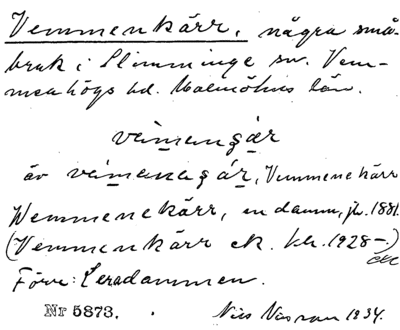 Vemmenkärr, några små-
bruk i Slimminge sn. Vem-
menhögs hd. Malmöhus län.
vämangár
äv vämanagár, Vemmenekärr
Wemmenekärr, en damm, jb. 1881.
(Vemmenkärr ek. kbr. 1928-.)
Förv: Leradammen.
Nr 5873. Nils 1934.